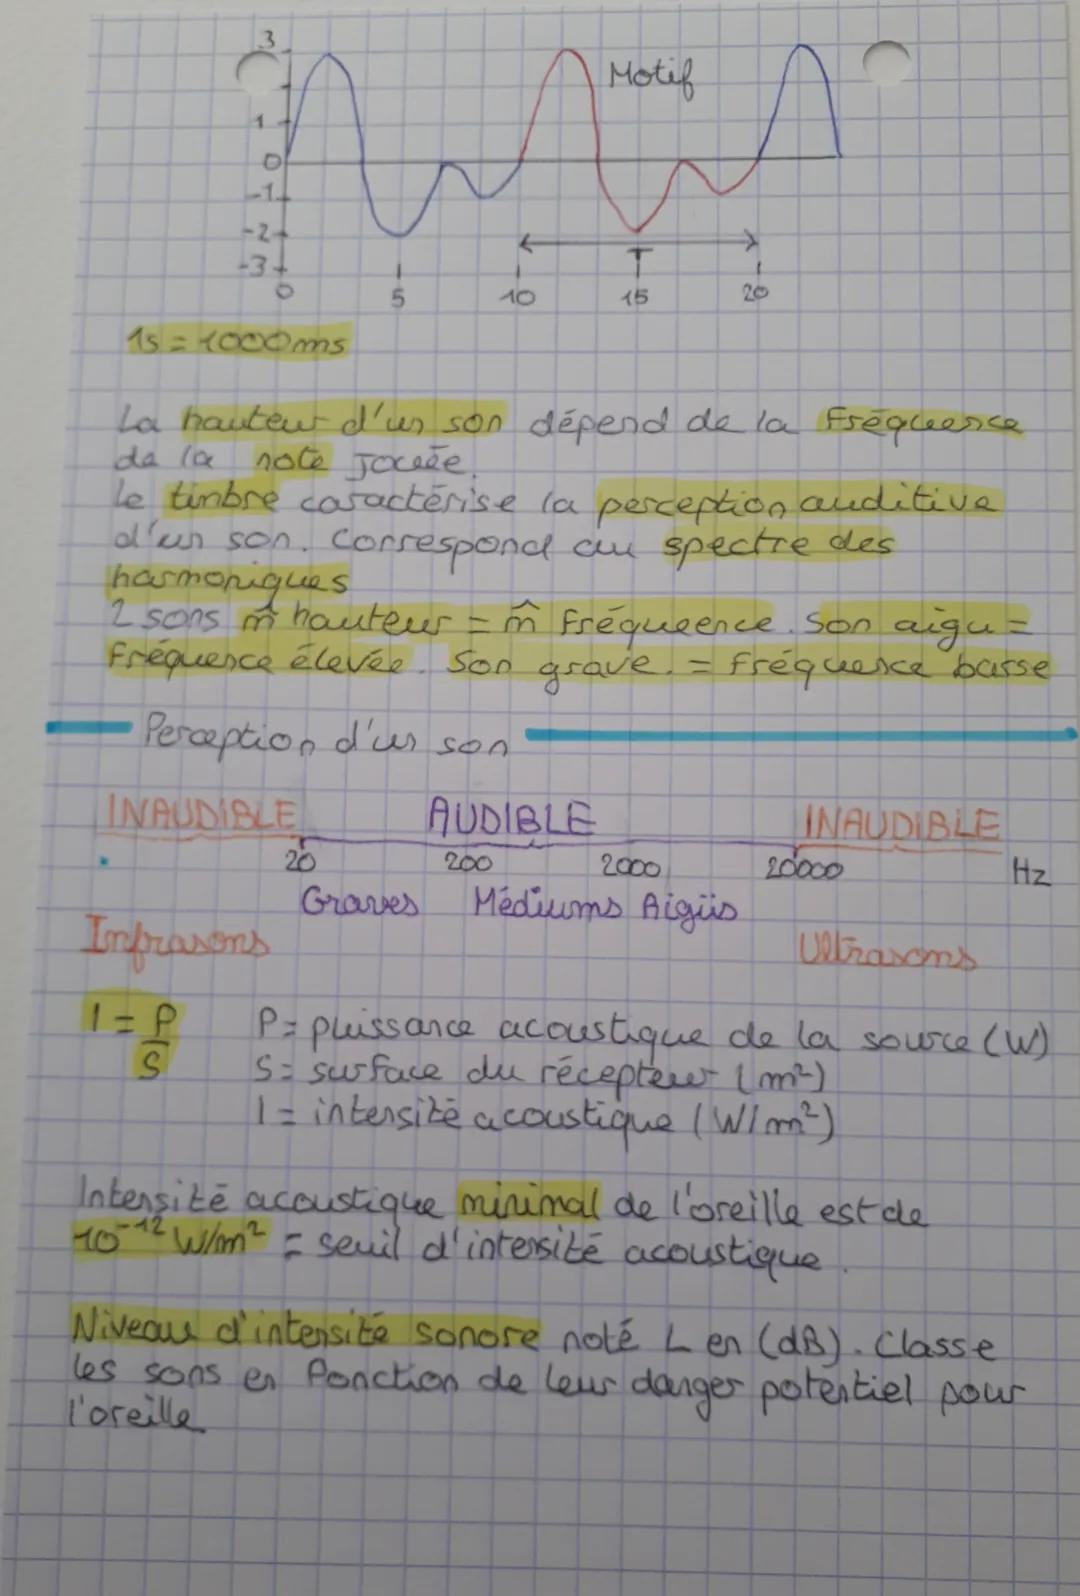 3
Motif
1
0
-1
-2
-3
T
0 5 10 15 20
1s = 1000ms
La hauteur d'un son dépend de la fréquence
de la note jouée.
Le timbre caractérise la perception auditive
d'un son. Correspond au spectre des
harmoniques
2 sons m̂ hauteur = m̂ fréqueence. Son aigu =
fréquence élevée. Son grave. = fréquence basse
Perception d'un son
INAUDIBLE AUDIBLE INAUDIBLE
20 200 2000 20000 Hz
Graves Médiums Aigüs
Infrasons Ultrasons
I = P/S P = puissance acoustique de la source (W)
S = surface du récepteur (m²)
I = intensité acoustique (W/m²)
Intensité acoustique minimal de l'oreille est de
10⁻¹² W/m² = seuil d'intensité acoustique.
Niveau d'intensité sonore noté L en (dB). Classe
les sons en fonction de leur danger potentiel pour
l'oreille